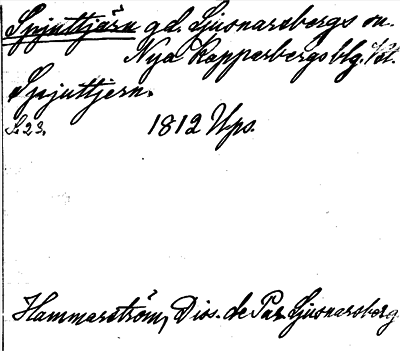 Spjuttjärn gd. Ljusnarsbergs sn.
Nya Kopparbergs blg.
Spjuttjern.
S. 23. 1812 Ups.
Hammarström, Diss. de Par. Ljusnarsberg